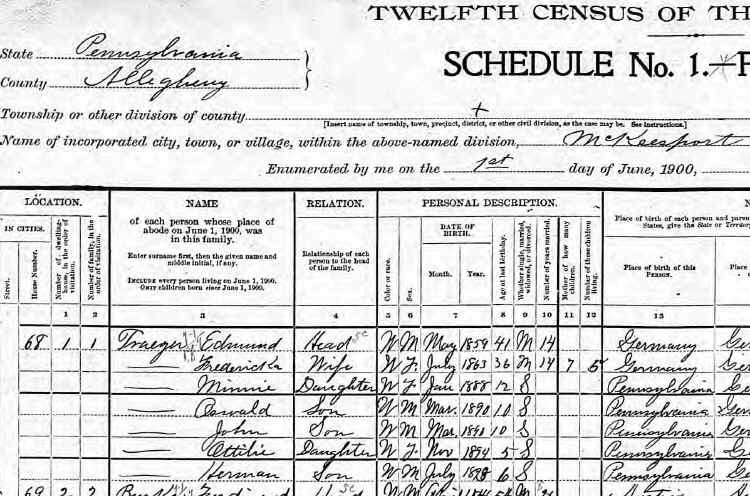 TWELFTH CENSUS OF TH
State Pennsylvania
County Allegheny
SCHEDULE No. 1.—P
Township or other division of county +
[Insert name of township, town, precinct, district, or other civil division, as the case may be. See instructions.]
Name of incorporated city, town, or village, within the above-named division, McKeesport
Enumerated by me on the 1st day of June, 1900,
LOCATION. NAME RELATION. PERSONAL DESCRIPTION. N
IN CITIES. Street. House Number. Number of dwelling-house, in the order of visitation. Number of family, in the order of visitation.
of each person whose place of abode on June 1, 1900, was in this family.
Enter surname first, then the given name and middle initial, if any.
INCLUDE every person living on June 1, 1900.
OMIT children born since June 1, 1900.
Relationship of each person to the head of the family.
Color or race. Sex. DATE OF BIRTH. Month. Year. Age at last birthday. Whether single, married, widowed, or divorced. Number of years married. Mother of how many children. Number of these children living.
Place of birth of each person and paren
States, give the State or Territor
Place of birth of this PERSON.
1 2 3 4 5 6 7 8 9 10 11 12 13
68 1 1 Traeger Edmund Head W M May 1859 41 M 14 Germany Ger
— Fredericka Wife W F July 1863 36 M 14 7 5 Germany Ger
— Minnie Daughter W F Jan 1888 12 S Pennsylvania Ger
— Oswald Son W M Mar. 1890 10 S Pennsylvania Ger
— John Son W M Mar. 1890 10 S Pennsylvania Ger
— Attilie Daughter W F Nov 1894 5 S Pennsylvania G
— Herman Son W M July 6 S Pennsylvania G
69 2 2